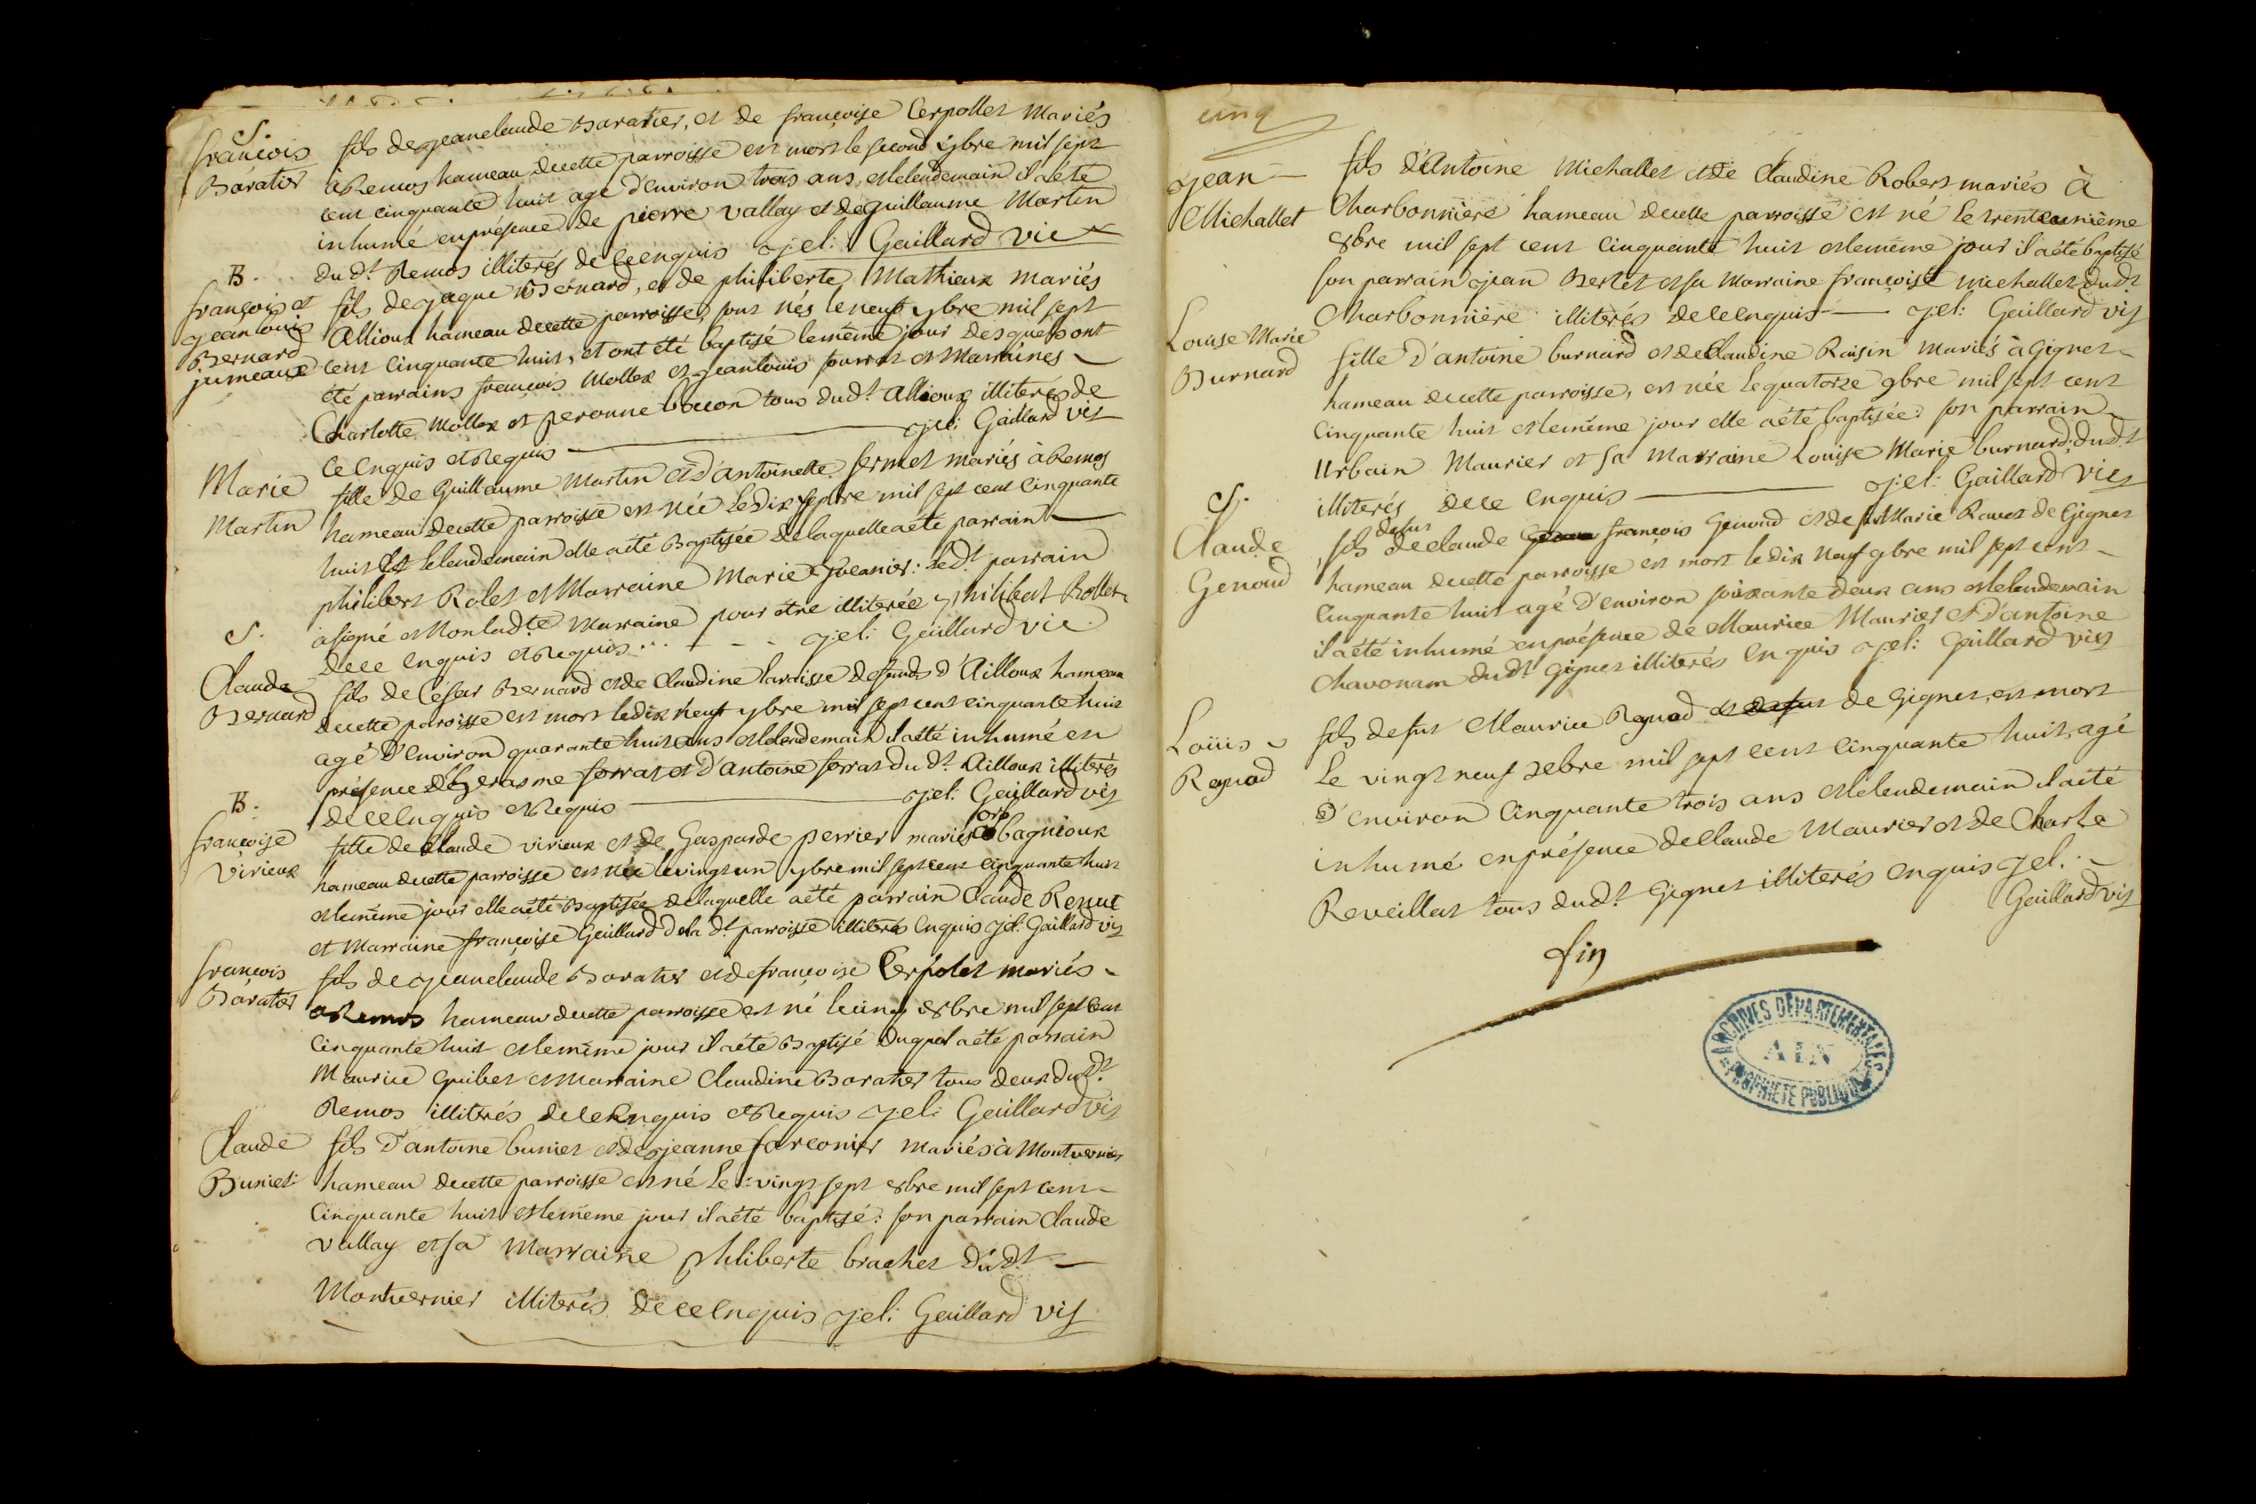 S.
françois
Baratier
fils de jeanclaude Baratier, et de françoise Cerpollet Mariés
à Remos hameau decette parroisse est mort le second 7bre mil sept
cent cinquante huit agé d'environ trois ans, et lendemain il aété
inhumé enprésence de pierre vallay et deguillaume Martin
dud.t Remos illiterés de ce enquis jel: Gaillard vic
B.
françois et
jeanlouis
Bernard
jumeaux
fils de jaque Bernard, et de philiberte Mathieux mariés
Allioux hameau decette parroisse, sont nés leneuf 7bre mil sept
cent cinquante huit, et ont été baptisé lemême jour desquels ont
été parrains françois Mollex et jeanlouis forrat et Marraines
Charlotte Mollex et peronne bocon tous dud.t Allioux illiterés de
ce enquis et Requis jel: Gaillard vis
Marie
Martin
fille de Guillaume Martin et d'antoinette fermet mariés à Remos
hameau decette parroisse est née ledix 7bre mil sept cent cinquante
huit et lelendemain elle aété Baptisée delaquelle aété parrain
philibert Rolet et Marraine Marie : led.t parrain
asigné et non lad.te Marraine pour être illiterée philibert Rollet
dece enquis et Requis... jel: Gaillard vic
S.
Claude
Bernard
fils de Cesar Bernard et de Claudine laraisse defunds d'Ailloux hameau
decette paroisse est mort ledix neuf 7bre mil sept cent cinquante huit
agé d'environ quarante huit ans et lendemain il aété inhumé en
présence d'Gerasme forrat et d'antoine forrat du d.t Ailloux illiterés
dece enquis et Requis jel: Gaillard vis
B.
françoise
Virieux
fille declaude virieux et de Gasparde perrier mariés à bagnioux
hameau decette parroisse est née levingt un 7bre mil sept cent cinquante huit
et lemême jour elle aété Baptisée delaquelle aété parrain Claude Renut
et Marraine françoise Gaillard dela d.t parroisse illiterés enquis jel: Gaillard vis
françois
Baratier
fils de jeanclaude Baratier et de françoise Cerpolet mariés
a Remos hameau decette parroisse est né lecinq 8bre mil sept cent
Cinquante huit et lemême jour il aété Baptisé duquel aété parrain
Maurice Guibet et Marraine Claudine Baratier tous deux dud.t
Remos illiterés dece enquis et Requis jel: Gaillard vis
Claude
Buniet
fils d'antoine buniet et de jeanne farconier mariés à Montvernier
hameau decette parroisse est né le vingt sept 8bre mil sept cent
Cinquante huit et lemême jour il aété baptisé: son parrain Claude
vallay et sa Marraine philiberte brachet dud.t
Montvernier illiterés dece enquis jel: Gaillard vis
cinq
jean
Michallet
fils d'Antoine Michallet et de Claudine Robert mariés à
Charbonniere hameau decette parroisse est né le trenteunième
8bre mil sept cent cinquante huit et lemême jour il aété baptisé
son parrain jean Berlet et sa Marraine françoise michallet dud.t
Charbonniere illiterés dece enquis jel: Gaillard vis
Louise Marie
Burnard
fille d'antoine burnard et de Claudine Raisin mariés à Gignet
hameau decette parroisse, est née lequatorze 9bre mil sept cent
Cinquante huit et lemême jour elle aété baptisée: son parrain
Urbain Maurier et sa Marraine Louise Marie burnard, dud.t
illiterés dece enquis jel: Gaillard Vis
S.
Claude
Genoud
fils defut declaude françois Genoud et de Marie Ravet de Gignet
hameau decette parroisse est mort ledix neuf 9bre mil sept cent
Cinquante huit agé d'environ soixante deux ans et lendemain
il aété inhumé enprésence de Maurice Maurier et d'antoine
Chavonam dud.t Gignet illiterés enquis jel: Gaillard vis
Loüis
Reynod
fils defut Maurice Reynod et defut de Gignet, est mort
Le vingt neuf xebre mil sept cent cinquante huit, agé
d'environ Cinquante trois ans et lelendemain il aété
inhumé enprésence de Claude Maurier et de Charle
Reveillat tous dud.t Gignet illiterés enquis jel:
Gaillard vis
fin
ARCHIVES DÉPARTEMENTALES
AIN
PROPRIÉTÉ PUBLIQUE